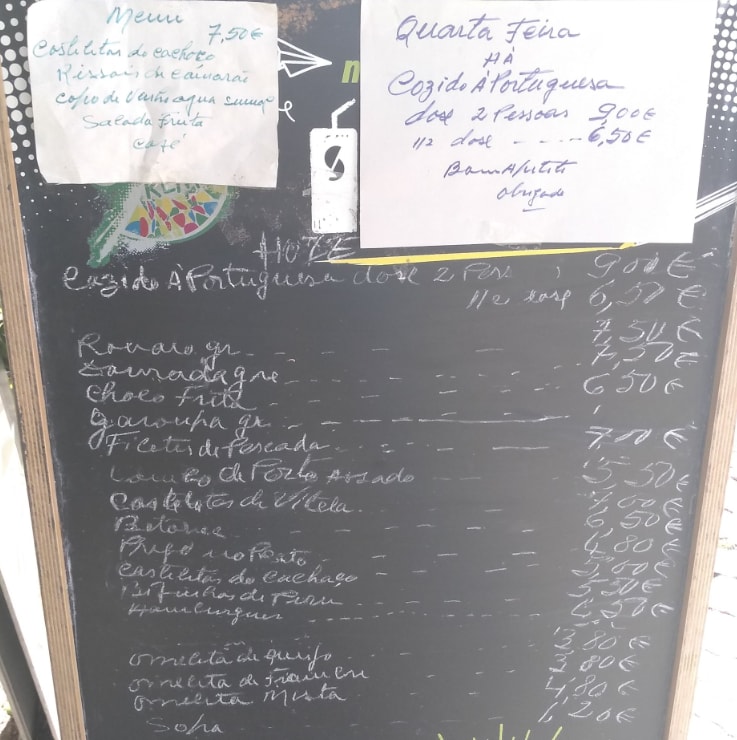 Menu
7,50€
Costelitas do cachaço
Rissois de camarão
copo de vinho agua sumo
Salada fruta
café
Quarta Feira
HÁ
Cozido À Portuguesa
dose 2 Pessoas 9,00€
1/2 dose ---- 6,50€
Bom Apetite
obrigado
HOJE
Cozido À Portuguesa dose 2 Pess 9,00€
1/2 dose 6,50€
7,50€
Robalo gr. 7,50€
Dourada gre 6,50€
choco frito
garoupa gr.
Filetes de Pescada 7,00€
Lombo de Porco Assado 5,50€
Costoletas de Vitela 7,00€
Bitoque 6,50€
Prego no Prato 4,80€
Costelitas do cachaço 5,00€
Bifinhos de Peru 5,50€
Hamburguer 6,50€
omelita de queijo 3,80€
omelita de Fiambre 3,80€
omelita Mista 4,80€
Sopa 1,20€